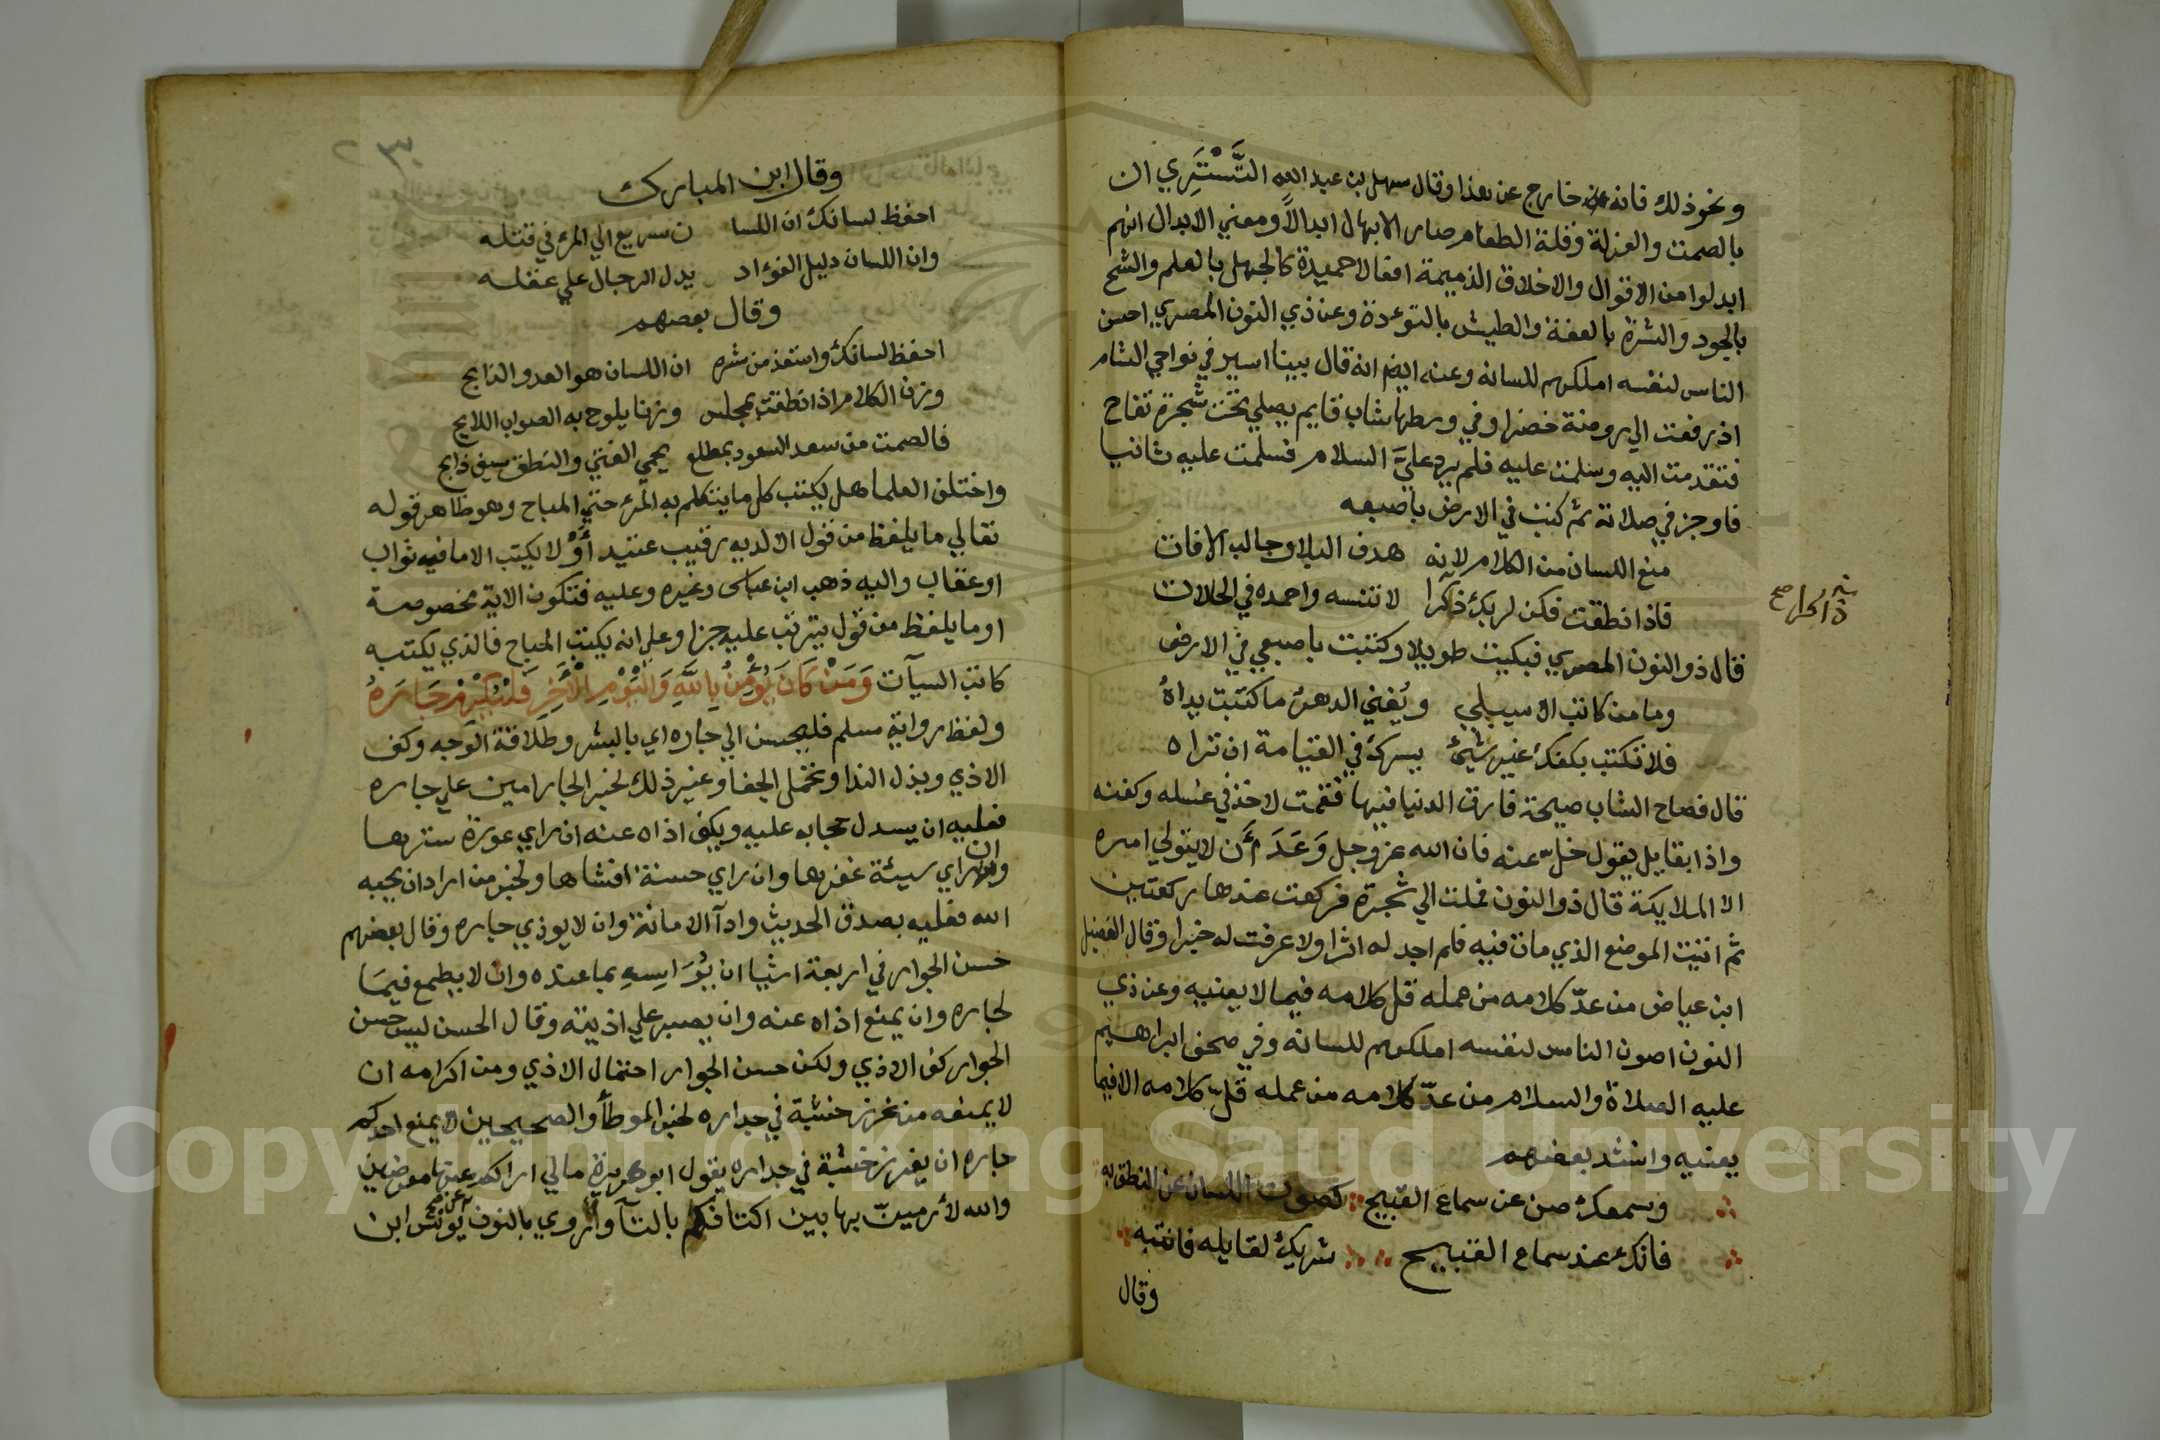 ونحوذلك فانه خارج عن هذا وقال سهل بن عبد الله التَّسْتَرِي ان
بالصمت والعزلة وقلة الطعام صار الابهال ابدالاً ومعني الابدال انهم
ابدلوا من الاقوال والاخلاق الذميمة افعالا حميدة كالجهل بالعلم والشح
بالجود والشرة بالعفة والطيش بالتوءدة وعن ذي النون المصري احسن
الناس لنفسه املكهم للسانه وعنه ايضا انه قال بينا اسير في نواحي الشام
اذ رفعت الي روضة خضرا وفي وسطها شاب قايم يصلي تحت شجرة تفاح
فتقدمت اليه وسلمت عليه فلم يرد عليَّ السلام فسلمت عليه ثانيا
فاوجز في صلاته ثم كتب في الارض باصبعه
منع اللسان من الكلام لانه هدف البلا وجالب الافات
فاذا نطقت فكن لربك ذاكرا لا تنسه واحمده في الحالات
ذاكرا صح
قال ذو النون المصري فبكيت طويلا وكتبت باصبعي في الارض
وما من كاتب الا سيبلي ويُفني الدهرُ ما كتبت يداهُ
فلا تكتب بكفك غير شيئ يسرك في القيامة ان تراه
قال فصاح الشاب صيحة فارق الدنيا فيها فقمت لاخذ في غسله وكفنه
واذا بقايل يقول خلّ عنه فان الله عز وجل وَعَدَ أن لا يتولي امره
الا الملايكة قال ذو النون فملت الي شجرة فركعت عندها ركعتين
ثم اتيت الموضع الذي مات فيه فلم اجد له اثرا ولا عرفت له خبرا وقال الفضيل
ابن عياض من عدّ كلامه من عمله قل كلامه فيما لا يعنيه وعن ذي
النون اصون الناس لنفسه املكهم للسانه وفي صحف ابراهيم
عليه الصلاة والسلام من عدّ كلامه من عمله قلّ كلامه الا فيما
يعنيه وانشد بعضهم
وسمعك صن عن سماع القبيح كصون اللسان عن النطق به
فانك عند سماع القبيح شريك لقايله فانتبه
وقال
٣٠
وقال ابن المبارك
احفظ لسانك ان اللسا ن سريع الي المرء في قتله
وان اللسان دليل الفوءاد يدل الرجال علي عقله
وقال بعضهم
احفظ لسانك واستعذ من شره ان اللسان هو العدو الذابح
وزن الكلام اذا نطقت بمجلس وزنا يلوح به الصواب اللايح
فالصمت من سعد السعود بمطلع يحمي الفتي والنطق سيف ذابح
واختلف العلما هل يكتب كل ما يتكلم به المرء حتي المباح وهو ظاهر قوله
تعالي ما يلفظ من قول الا لديه رقيب عتيد أوْ لا يكتب الا ما فيه ثواب
او عقاب واليه ذهب ابن عباس وغيره وعليه فتكون الاية مخصوصة
او ما يلفظ من قول يترتب عليه جزا وعلي انه يكتب المباح فالذي يكتبه
كاتب السيآت وَمَنْ كَانَ يُؤْمِنُ بِاللَّهِ وَالْيَوْمِ الْأَخِرِ فَلْيُكْرِمْ جَارَهُ
ولفظ رواية مسلم فليحسن الي جاره اي بالبشر وطلاقة الوجه وكف
الاذي وبذل الندا وتحمل الجفا وغير ذلك لخبر الجار امين علي جاره
فعليه ان يسدل حجابه عليه ويكف اذاه عنه ان راي عورة سترها
وان راي سيئة غفرها وان راي حسنة افشاها ولخبر من اراد ان يحبه
الله فعليه بصدق الحديث وادآ الامانة وان لا يوذي جاره وقال بعضهم
حسن الجوار في اربعة اشيا ان يُوَاسِيهِ بما عنده وان لا يطمع فيمَا
لجاره وان يمنع اذاه عنه وان يصبر علي اذيته وقال الحسن ليس حسن
الجوار كف الاذي ولكن حسن الجوار احتمال الاذي ومن اكرامه ان
لا يمنعه من غرز خشبة في جداره لخبر الموطأ والصحيحين لا يمنع احدكم
جاره ان يغرز خشبة في جداره يقول ابو هريرة مالي اراكم عنها معرضين
والله لأرمينّ بها بين اكتافكم بالتآ وروي بالنون يونس ابن
Copyright © King Saud University